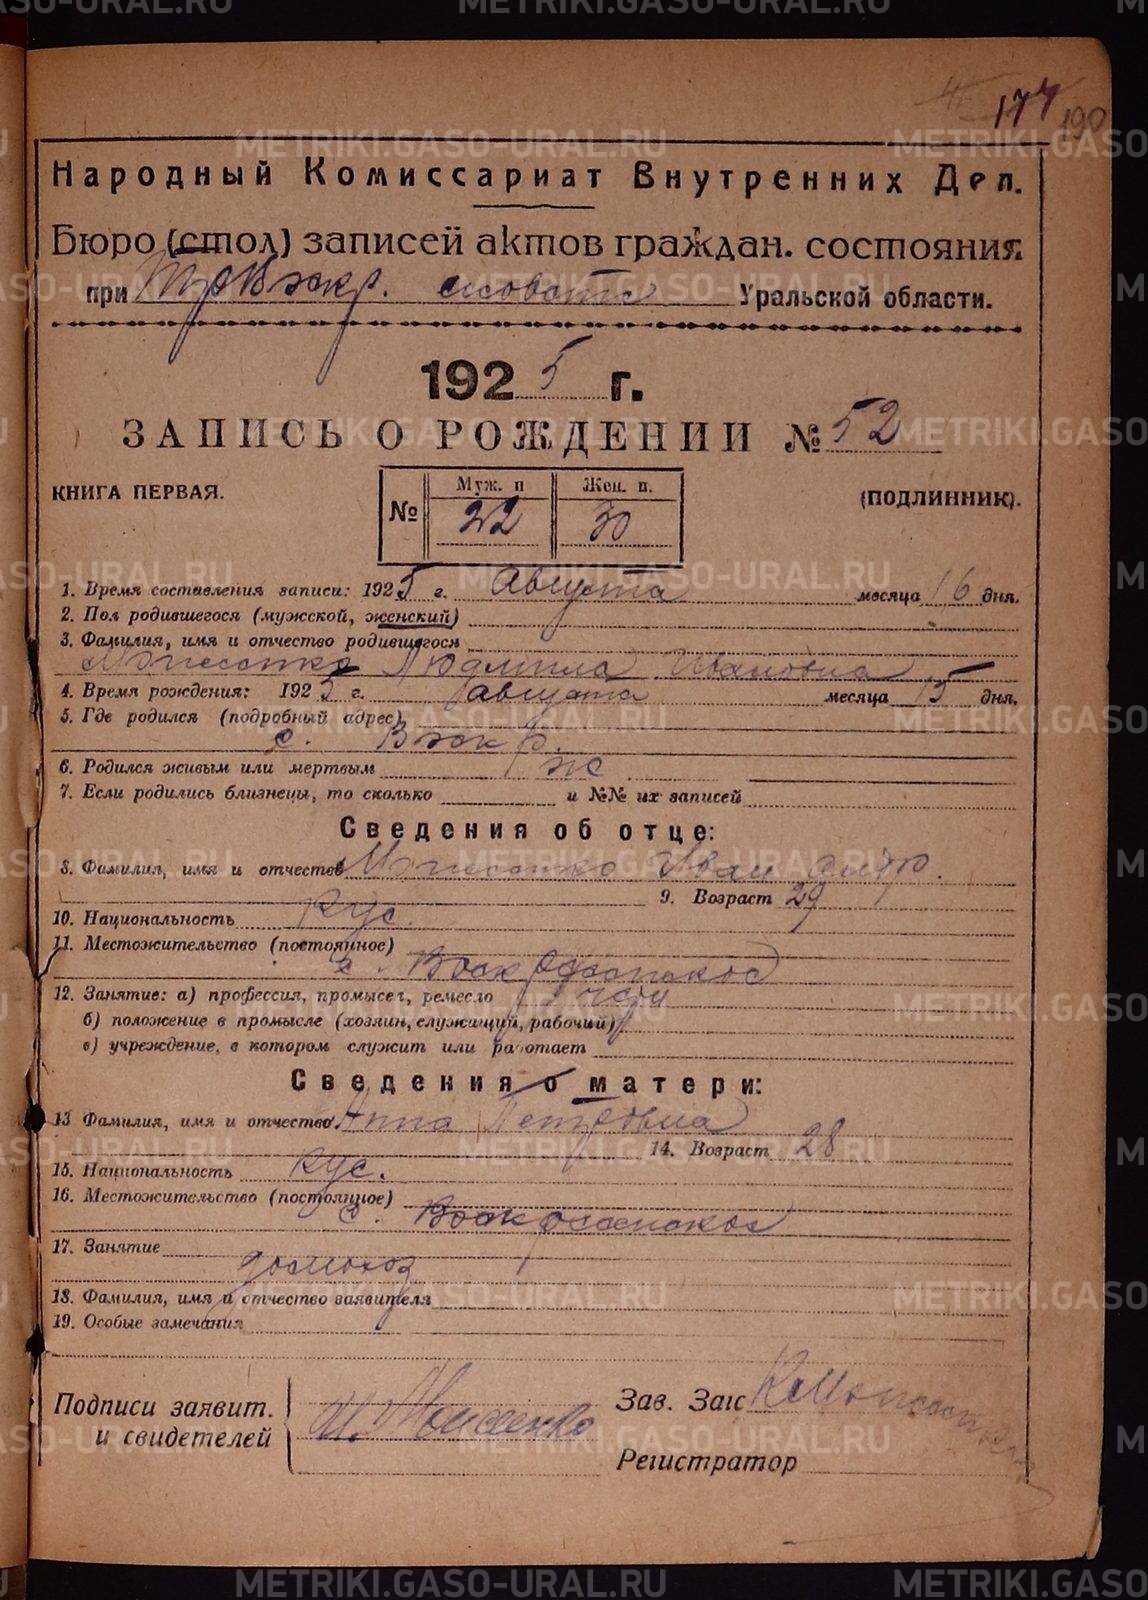 174 190
Народный Комиссариат Внутренних Дел.
Бюро (стол) записей актов граждан. состояния
при Уральской области.
1925 г.
ЗАПИСЬ О РОЖДЕНИИ № 52
КНИГА ПЕРВАЯ.
(ПОДЛИННИК).
№ Муж. п Жен. п.
22 30
1. Время составления записи: 1925 г. Августа месяца 16 дня.
2. Пол родившегося (мужской, женский)
3. Фамилия, имя и отчество родившегося
Людмила Ивановна
4. Время рождения: 1925 г. августа месяца 15 дня.
5. Где родился (подробный адрес)
с.
6. Родился живым или мертвым ж
7. Если родились близнецы, то сколько и №№ их записей
Сведения об отце:
8. Фамилия, имя и отчество Иван
9. Возраст 29
10. Национальность Рус.
11. Местожительство (постоянное)
с. Воскресенское
12. Занятие: а) профессия, промысел, ремесло
б) положение в промысле (хозяин, служащий, рабочий)
в) учреждение, в котором служит или работает
Сведения о матери:
13 Фамилия, имя и отчество Анна Петровна
14. Возраст 28
15. Национальность рус.
16. Местожительство (постоянное)
с. Воскресенское
17. Занятие
домохоз
18. Фамилия, имя и отчество заявителя
19. Особые замечания
Подписи заявит.
и свидетелей
Зав. Загс
Регистратор
METRIKI.GASO-URAL.RU